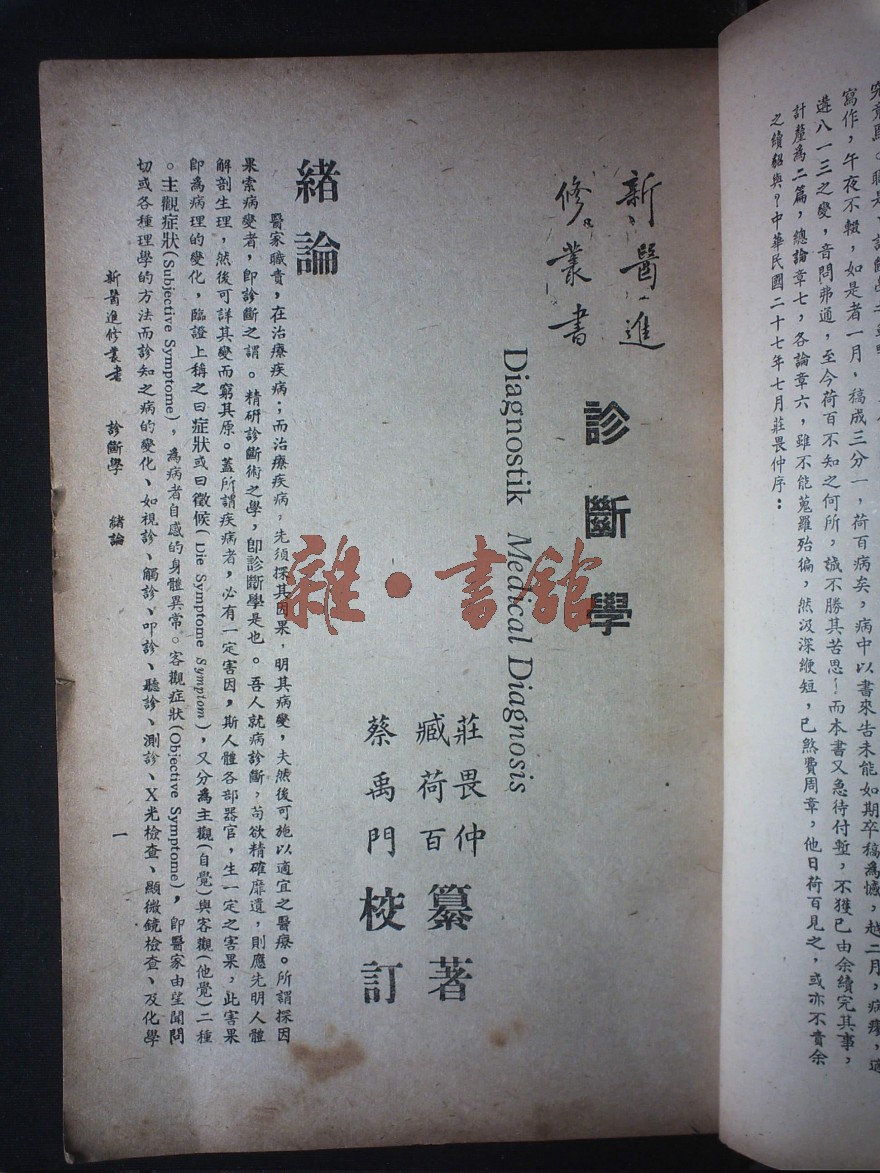 寫作，午夜不輟，如是者一月，稿成三分一，荷百病矣，病中以書來告未能如期卒稿爲憾，越二月，病瘳，適
遘八一三之變，音問弗通，至今荷百不知之何所，誠不勝其苦思！而本書又急待付塹，不獲已由余續完其事，
計釐爲二篇，總論章七，各論章六，雖不能蒐羅殆徧，然汲深綆短，已煞費周章，他日荷百見之，或亦不責余
之續貂與？中華民國二十七年七月莊畏仲序：
新醫進
修叢書
診斷學
Diagnostik Medical Diagnosis
莊畏仲
臧荷百
纂著
蔡禹門校訂
緒論
醫家職責，在治療疾病；而治療疾病，先須探其因果，明其病變，夫然後可施以適宜之醫療。所謂探因
果索病變者，即診斷之謂。精研診斷術之學，即診斷學是也。吾人就病診斷，苟欲精確靡遺，則應先明人體
解剖生理，然後可詳其變而窮其原。蓋所謂疾病者，必有一定害因，斯人體各部器官，生一定之害果，此害果
即爲病理的變化，臨證上稱之曰症狀或曰徵候(Die Symptome Symptom)，又分爲主觀(自覺)與客觀(他覺)二種
。主觀症狀(Subjective Symptome)，爲病者自感的身體異常。客觀症狀(Objective Symptome)，即醫家由望聞問
切或各種理學的方法而診知之病的變化、如視診、觸診、叩診、聽診、測診、X光檢查、顯微鏡檢查、及化學
新醫進修叢書 診斷學 緒論 一
雜·書館